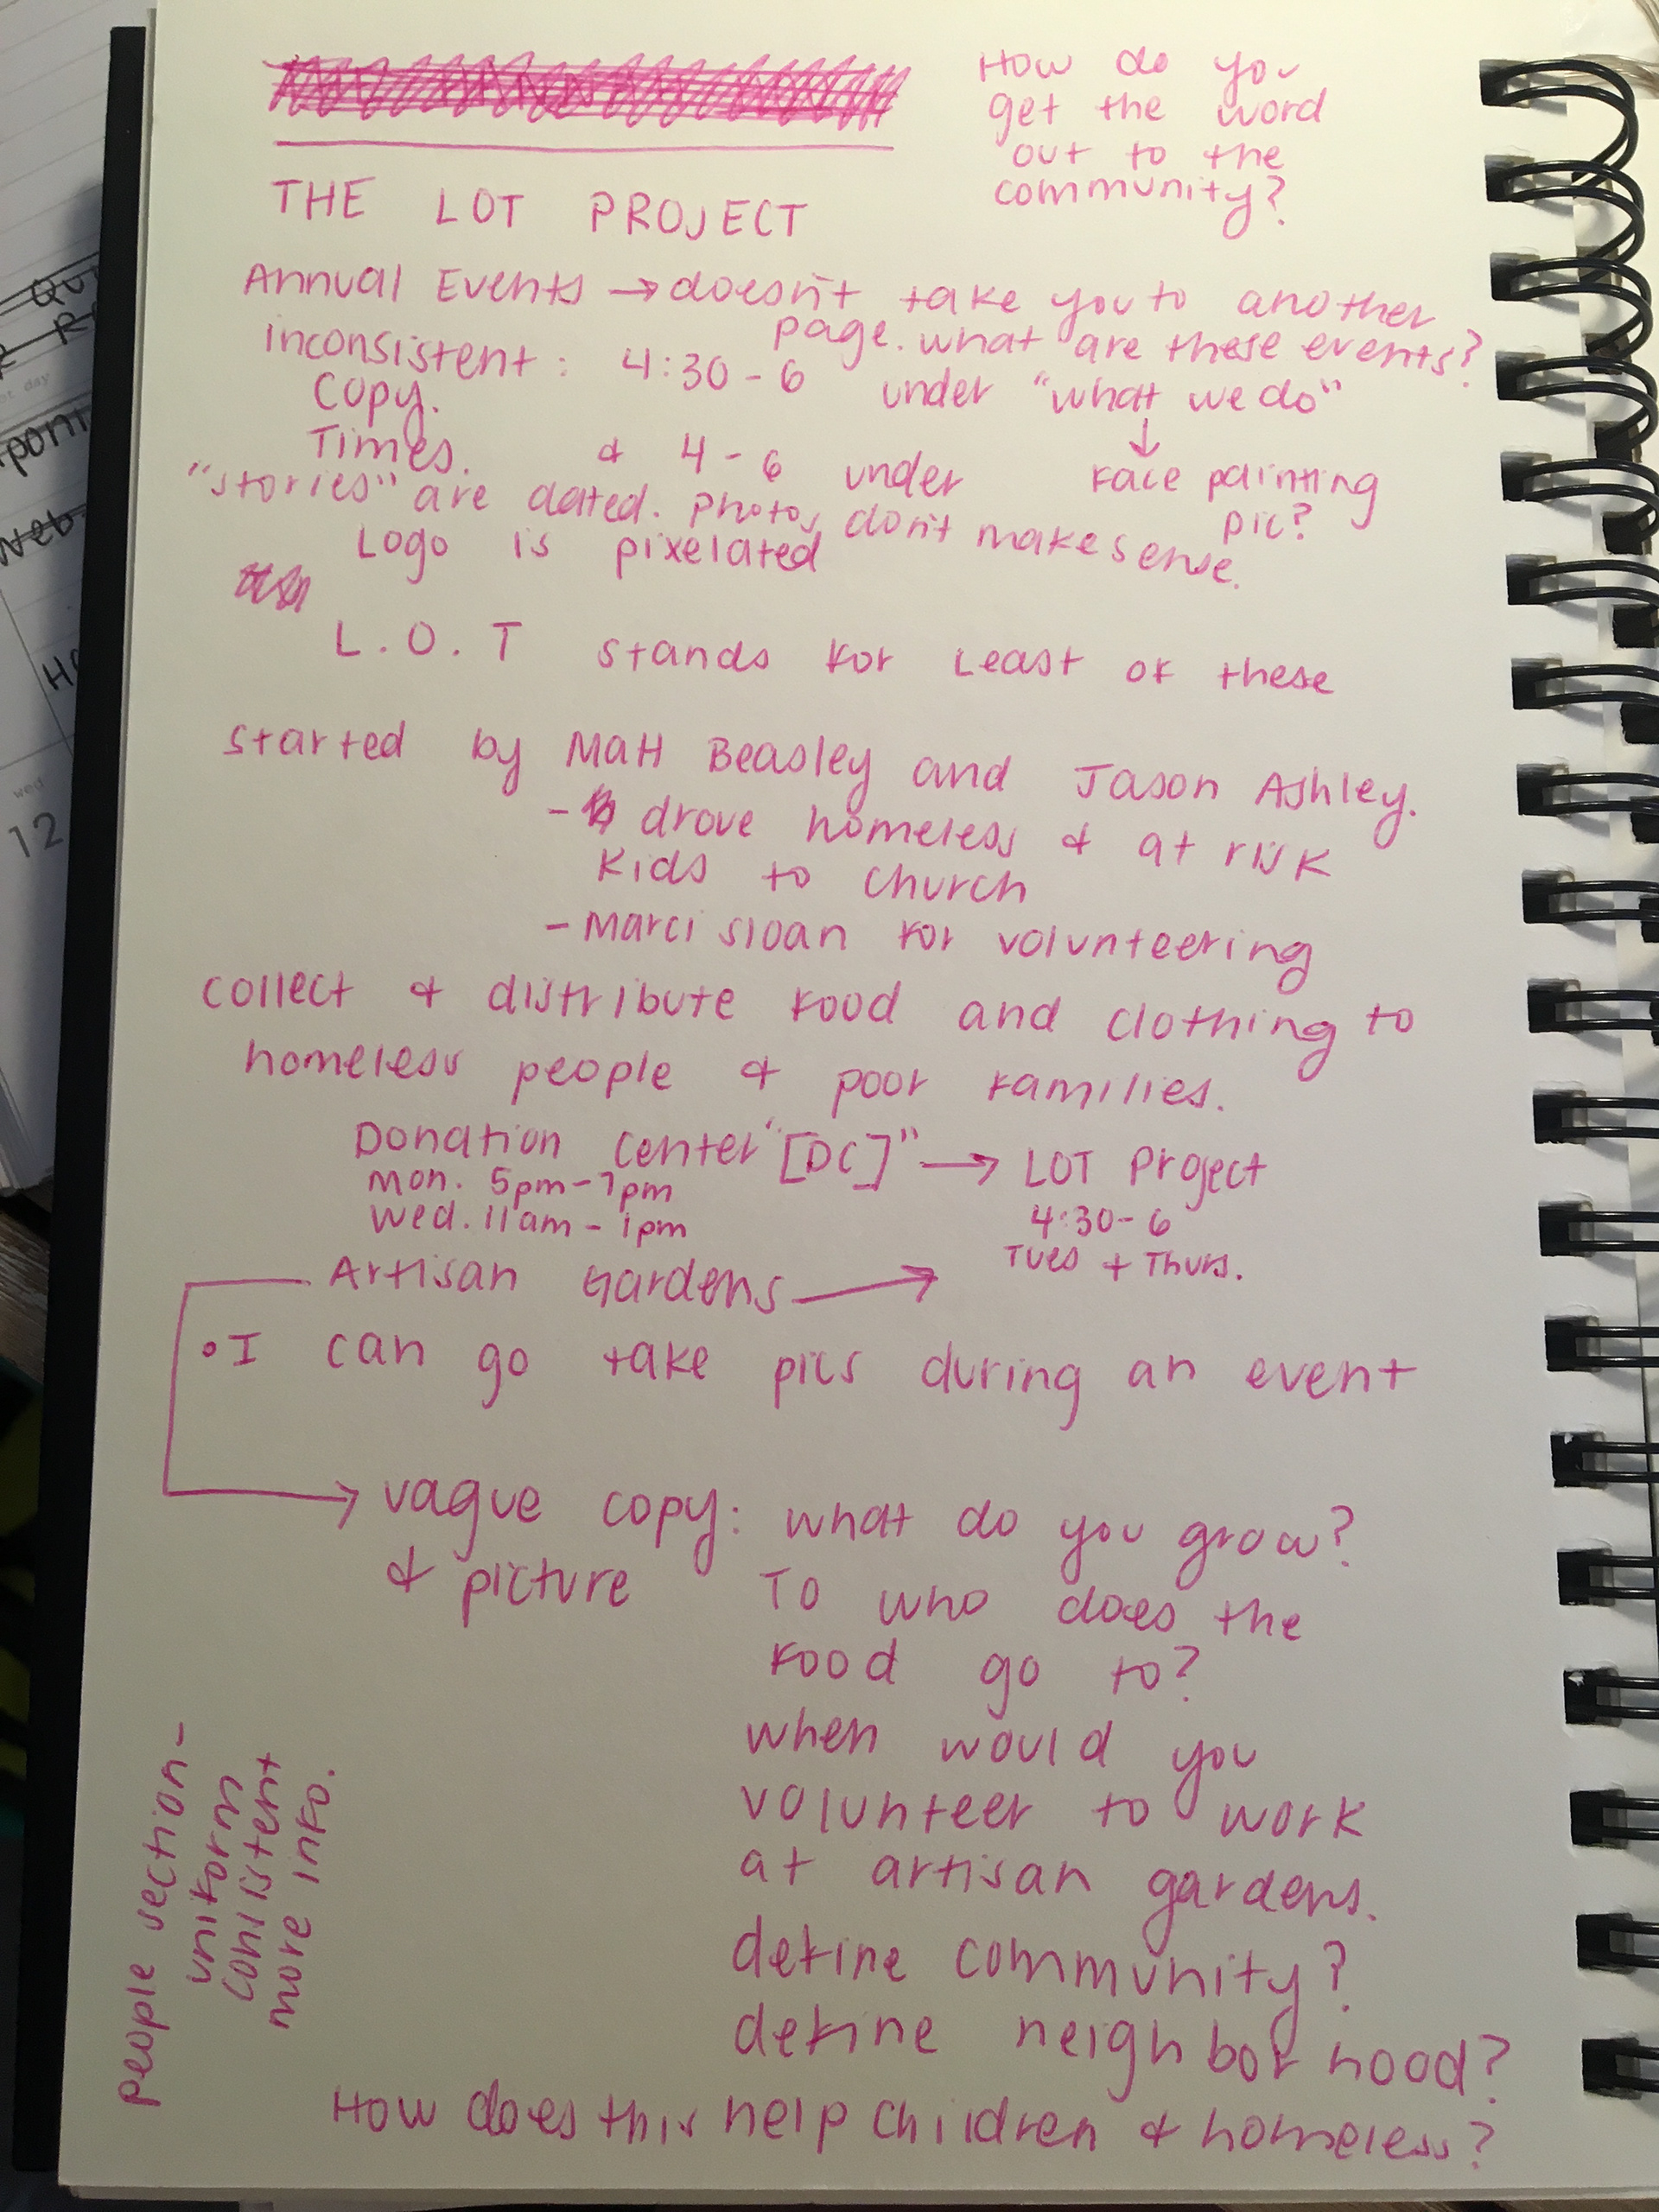 How do you
get the word
out to the
community?
THE LOT PROJECT
Annual Events → doesn't take you to another
page. what are these events?
inconsistent: 4:30-6 under "what we do"
copy.
Times. & 4-6 under
↓
face painting
pic?
"stories" are dated. photos don't make sense.
Logo is pixelated
L.O.T stands for Least of these
started by Matt Beasley and Jason Ashley.
- drove homeless & at risk
kids to church
- Marci Sloan for volunteering
collect & distribute food and clothing to
homeless people & poor families.
Donation center "[DC]" → LOT Project
mon. 5pm-7pm
wed. 11am-1pm
4:30-6
Tues + Thurs.
Artisan Gardens →
• I can go take pics during an event
→ vague copy: what do you grow?
& picture To who does the
food go to?
when would you
volunteer to work
at artisan gardens.
define community?
define neighborhood?
How does this help children & homeless?
people section-
uniform
consistent
more info.
wed
12